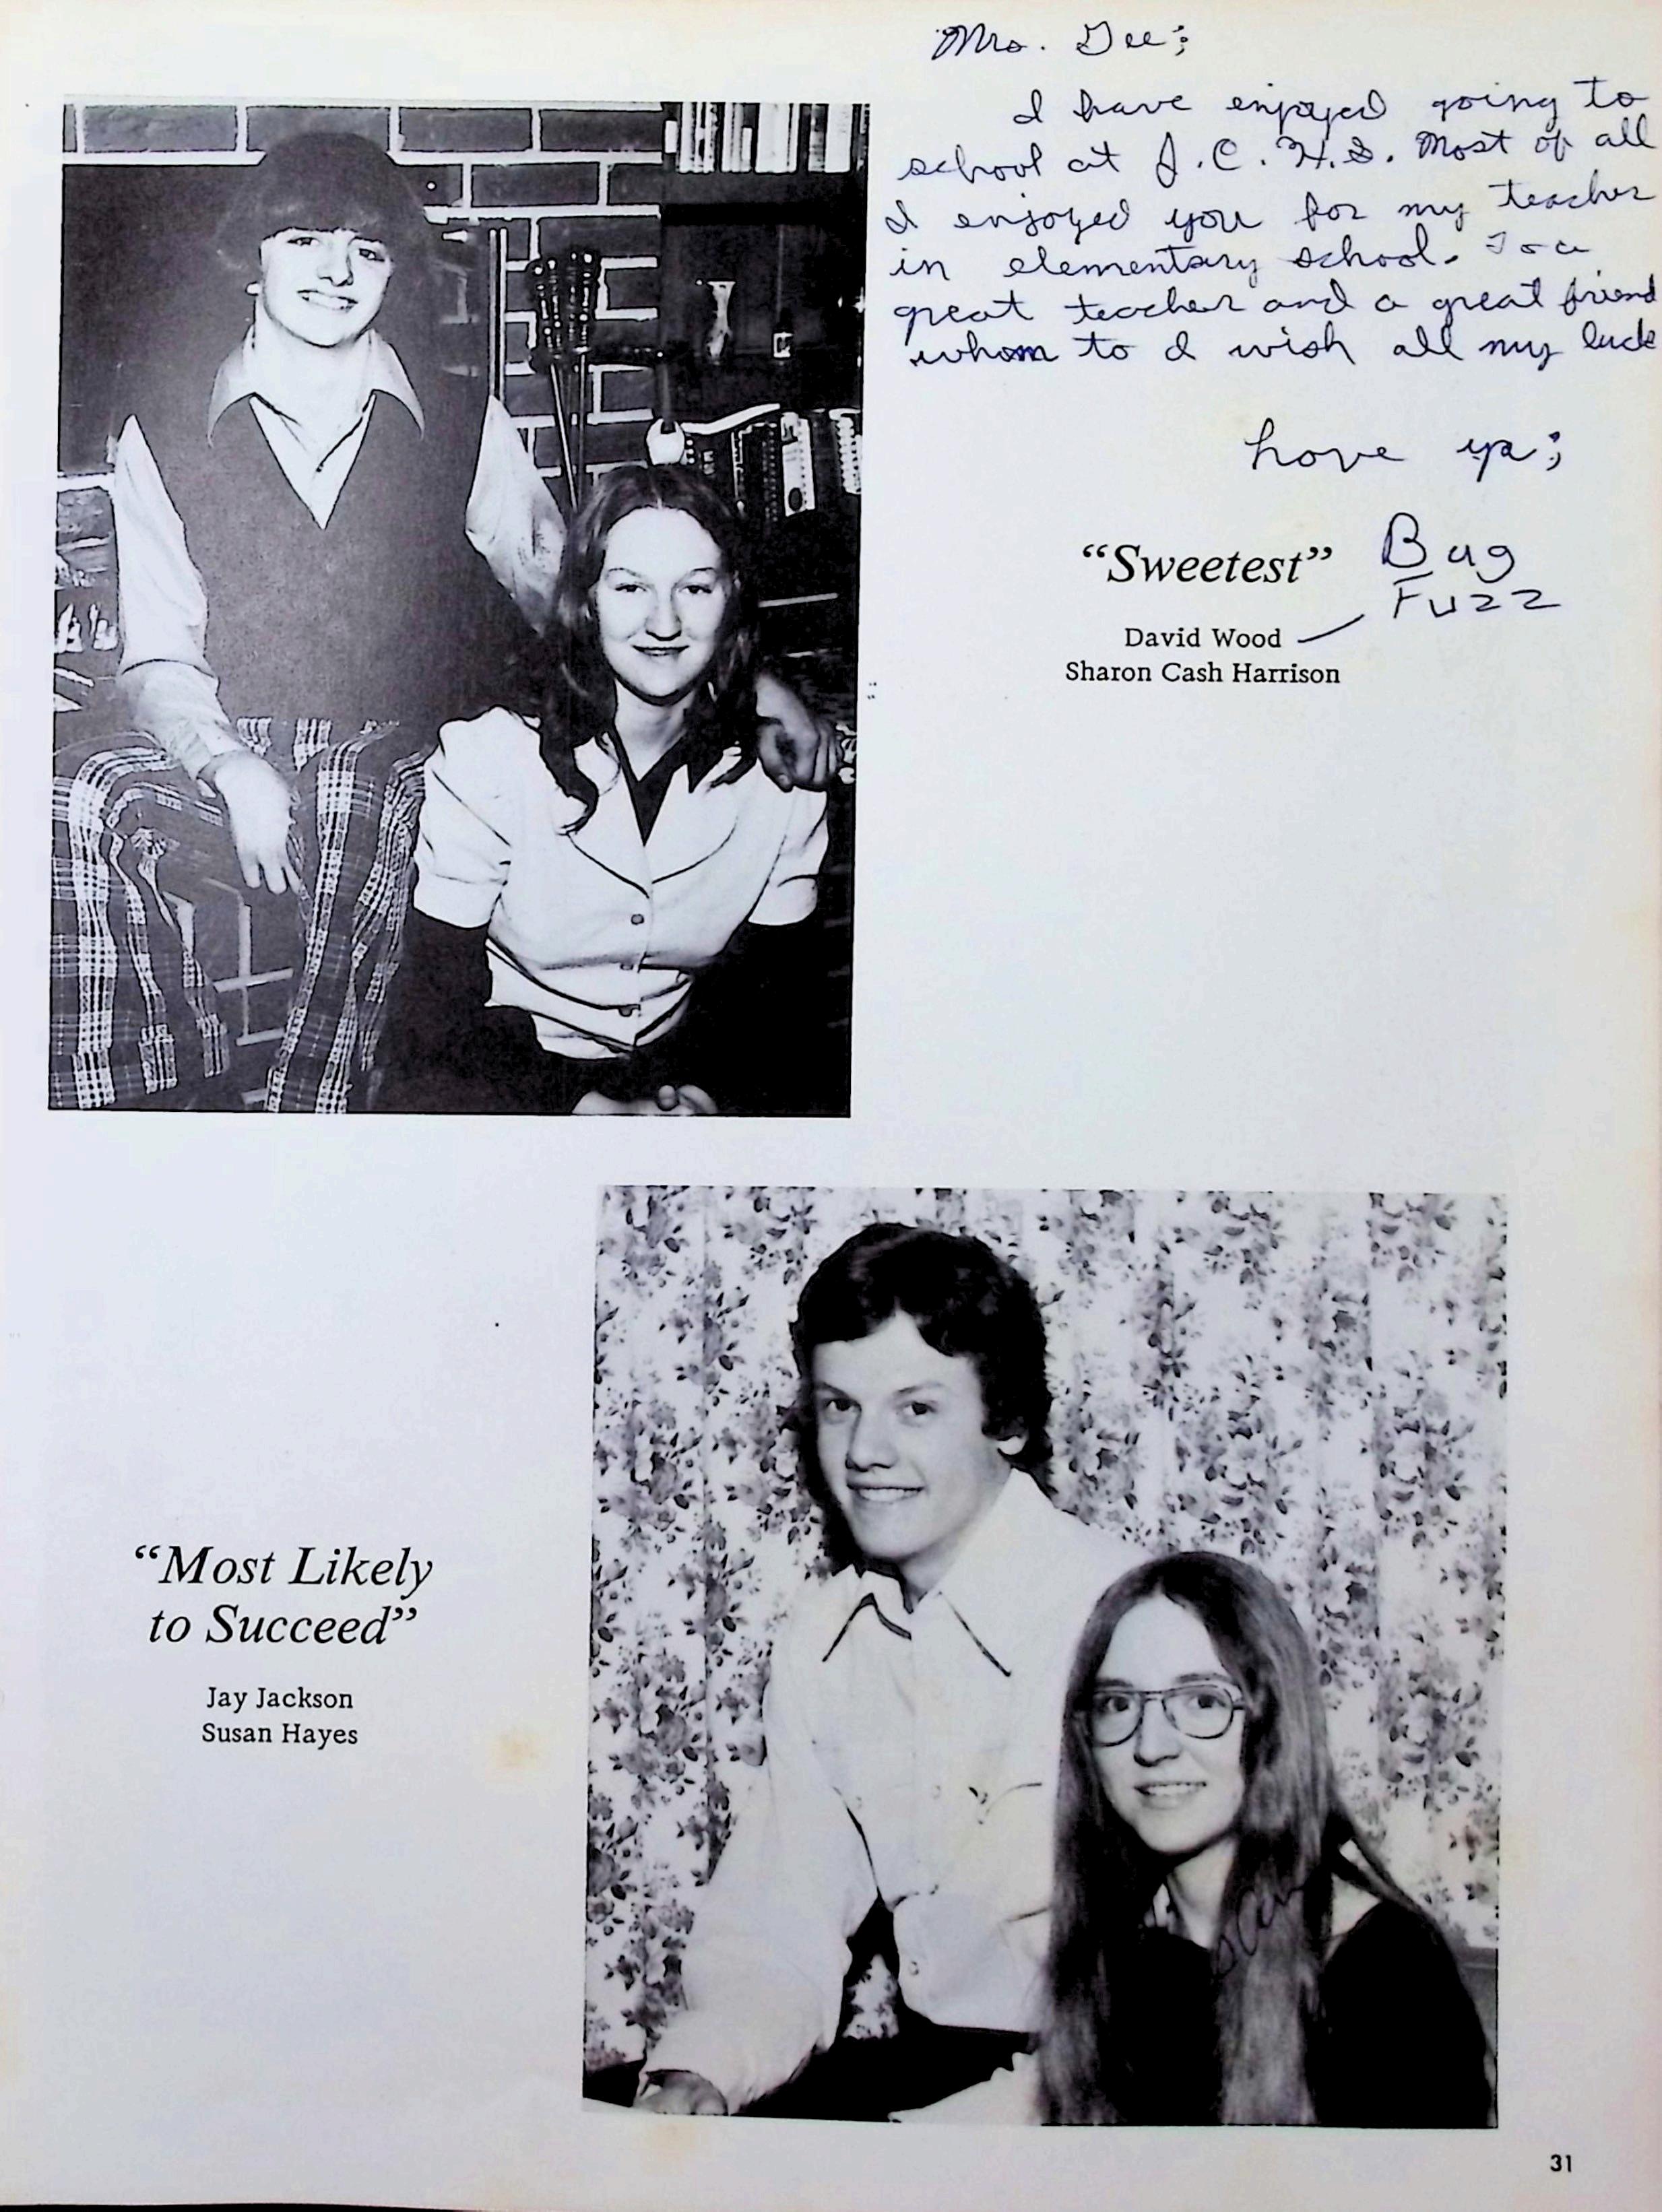 Mrs. Dee;
I have enjoyed going to
school at J.C.H.S. Most of all
I enjoyed you for my teacher
in elementary school. To a
great teacher and a great friend
whom to I wish all my luck
Love ya;
Bug
Fuzz
“Sweetest”
David Wood
Sharon Cash Harrison
“Most Likely
to Succeed”
Jay Jackson
Susan Hayes
31